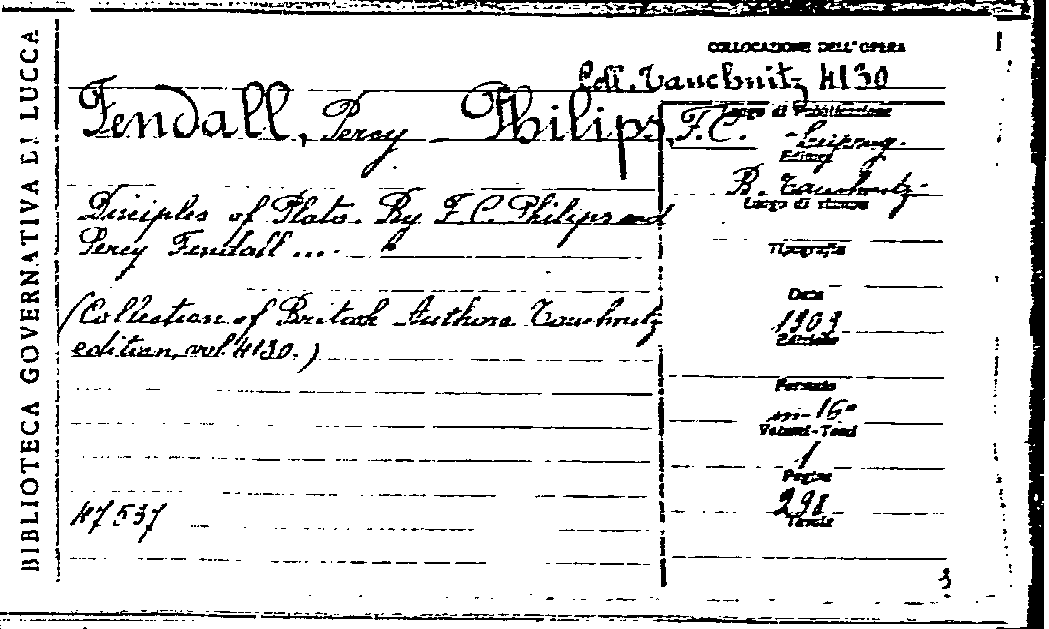 BIBLIOTECA GOVERNATIVA DI LUCCA
COLLOCAZIONE DELL'OPERA
Coll. Tauchnitz 4130
Fendall, Percy - Philips, F. C.
Disciples of Plato. By F. C. Philips and
Percy Fendall ...
(Collection of British Authors Tauchnitz
edition, vol. 4130.)
47537
Luogo di Pubblicazione
Leipzig
Editore
B. Tauchnitz
Luogo di stampa
Tipografia
Data
1909
Edizione
Formato
in-16°
Volumi-Tomi
1
Pagine
298
Tavole